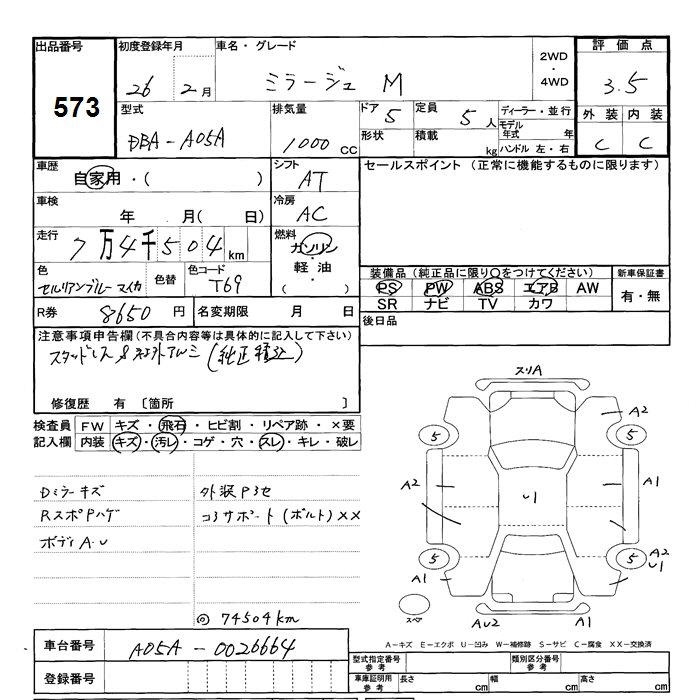 出品番号 573
初度登録年月 26 2月
車名・グレード ミラージュ M
2WD・4WD
評価点 3.5
型式 DBA-A05A
排気量 1000 CC
ドア 5
定員 5人
ディーラー・並行
形状
積載 kg
モデル年式 年
ハンドル 左・右
外装 C
内装 C
車歴 自家用・( )
シフト AT
セールスポイント (正常に機能するものに限ります)
車検 年 月( 日)
冷房 AC
走行 7万4千504 km
燃料 ガソリン・軽油・( )
色 セルリアンブルーマイカ
色替
色コード T69
装備品(純正品に限り〇をつけてください)
PS PW ABS エアB AW
SR ナビ TV カワ
新車保証書 有・無
R券 8650 円
名変期限 月 日
後日品
注意事項申告欄(不具合内容等は具体的に記入して下さい)
スタッドレス
修復歴 有 〔箇所 〕
検査員記入欄
FW キズ・飛石・ヒビ割・リペア跡・×要
内装 キズ・汚レ・コゲ・穴・スレ・キレ・破レ
Dミラーキズ 外装P3セ
RスポPハゲ コアサポート(ボルト)XX
ボディA.U
◎ 74504km
スリA
A2
5 5
A2 U1 A1
5 5 A2 U1
A1
スペア
AU2 A1
A-キズ E-エクボ U-凹み W-補修跡 S-サビ C-腐食 XX-交換済
車台番号 A05A-0026664
登録番号
型式指定番号 参考
類別区分番号 参考
車庫証明用 参考 長さ cm 幅 cm 高さ cm